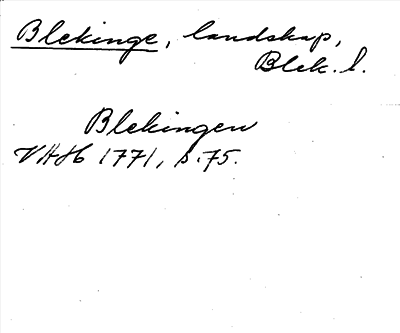 Blekinge, landskap,
Blek. l.
Blekingen
VHAH 1771, s. 75.